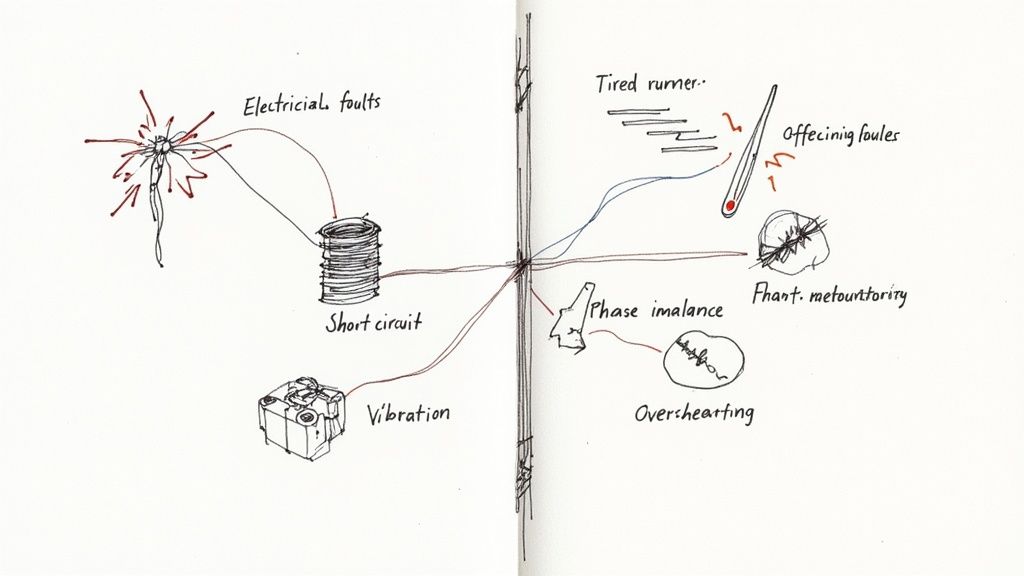 Electricial faults
Short circuit
Vibration
Tired rumer..
Offecining foules
Fhant. metountority
Phase imalance
Overshearting